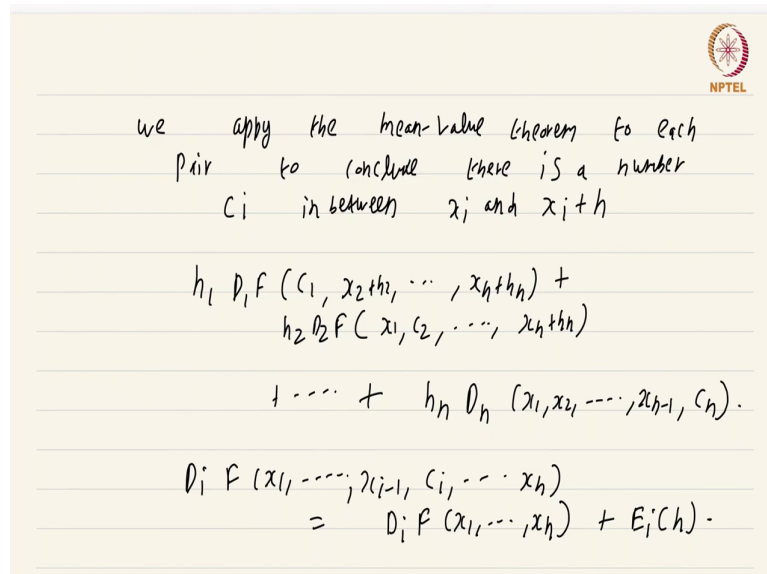 NPTEL
we appy the mean-value theorem to each
pair to conclude there is a number
Ci in between xi and xi+h
h1 D1F (C1, x2+h2, ..., xn+hn) +
h2 D2F (x1, C2, ...., xn+hn)
+ .... + hn Dn (x1, x2, ...., xn-1, Cn).
Di F (x1, ...., xi-1, Ci, ... xn)
= Di F (x1, ..., xn) + Ei(h).